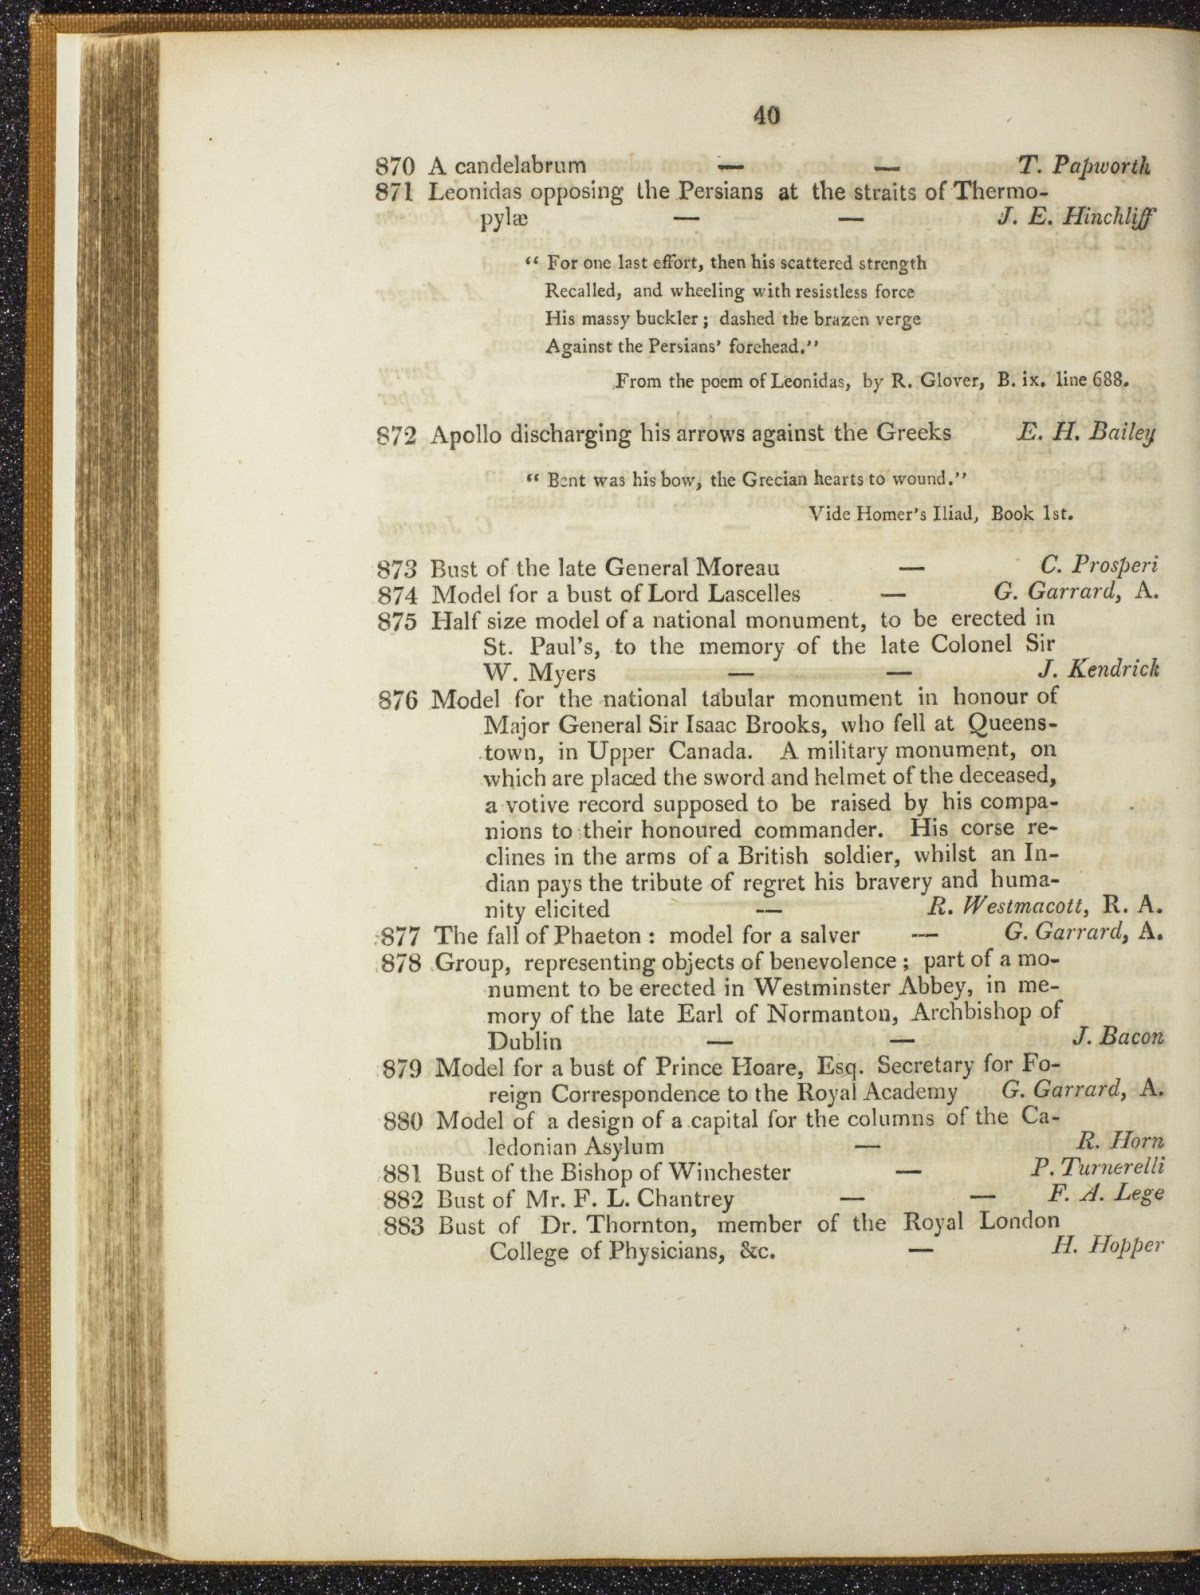 40
870 A candelabrum — — T. Papworth
871 Leonidas opposing the Persians at the straits of Thermo-
pylæ — — J. E. Hinchliff
“ For one last effort, then his scattered strength
Recalled, and wheeling with resistless force
His massy buckler ; dashed the brazen verge
Against the Persians’ forehead.”
From the poem of Leonidas, by R. Glover, B. ix. line 688.
872 Apollo discharging his arrows against the Greeks E. H. Bailey
“ Bent was his bow, the Grecian hearts to wound.”
Vide Homer’s Iliad, Book 1st.
873 Bust of the late General Moreau — C. Prosperi
874 Model for a bust of Lord Lascelles — G. Garrard, A.
875 Half size model of a national monument, to be erected in
St. Paul’s, to the memory of the late Colonel Sir
W. Myers — — J. Kendrick
876 Model for the national tabular monument in honour of
Major General Sir Isaac Brooks, who fell at Queens-
town, in Upper Canada. A military monument, on
which are placed the sword and helmet of the deceased,
a votive record supposed to be raised by his compa-
nions to their honoured commander. His corse re-
clines in the arms of a British soldier, whilst an In-
dian pays the tribute of regret his bravery and huma-
nity elicited — R. Westmacott, R. A.
877 The fall of Phaeton : model for a salver — G. Garrard, A.
878 Group, representing objects of benevolence ; part of a mo-
nument to be erected in Westminster Abbey, in me-
mory of the late Earl of Normanton, Archbishop of
Dublin — — J. Bacon
879 Model for a bust of Prince Hoare, Esq. Secretary for Fo-
reign Correspondence to the Royal Academy G. Garrard, A.
880 Model of a design of a capital for the columns of the Ca-
ledonian Asylum — R. Horn
881 Bust of the Bishop of Winchester — P. Turnerelli
882 Bust of Mr. F. L. Chantrey — — F. A. Lege
883 Bust of Dr. Thornton, member of the Royal London
College of Physicians, &c. — H. Hopper